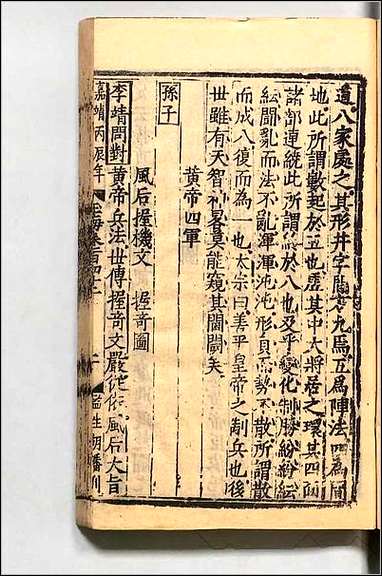 道八家處之其形井字開方九焉五爲陣法四爲閒
地此所謂數起於五也虛其中大將居之環其四面
諸部連繞此所謂終於八也及乎變化制勝紛紛紜
紜鬪亂而法不亂渾渾沌沌形員而勢不散所謂散
而成八復而爲一也太宗曰善乎皇帝之制兵也後
世雖有天智神畧莫能窺其閫閾矣
黃帝四軍
孫子
風后握機文 握奇圖
李靖問對 黃帝兵法世傳握奇文嚴從依風后大旨
嘉靖丙辰年 玉海卷百四十 二 監生胡